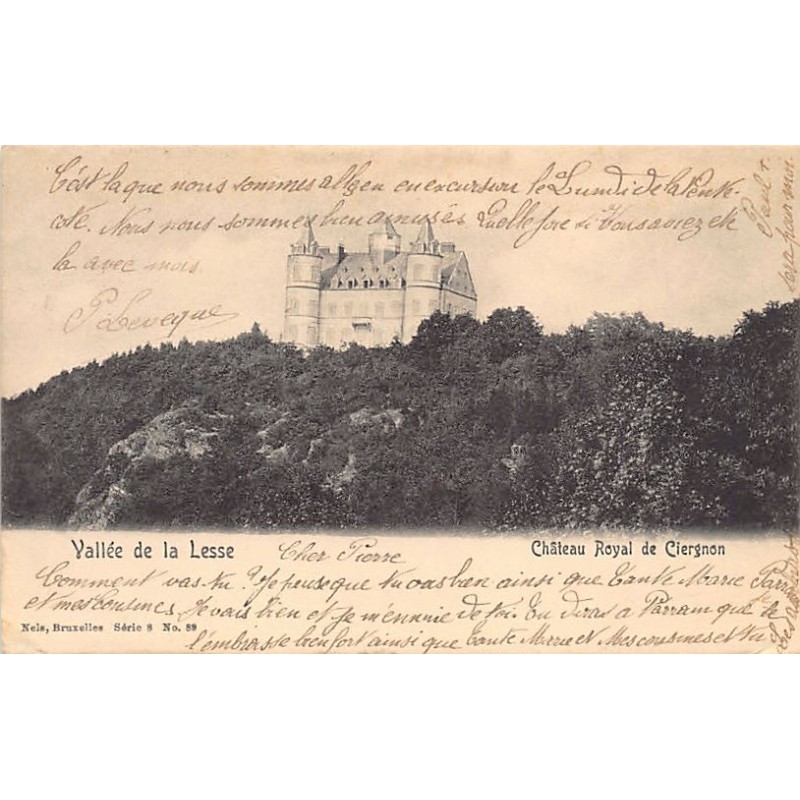 C'est la que nous sommes allé en excursion le Lundi de la Pente-
coté. Nous nous sommes bien amusés Quelle joie si Vous aviez été
la avec moi.
P. Leveque
Vallée de la Lesse
Château Royal de Ciergnon
Cher Pierre
Comment vas tu? Je pense que tu vas bien ainsi que Tante Marie Parrain
et mes cousines Je vais bien et je m'ennuie de toi. Tu diras a Parrain que je
l'embrasse bien fort ainsi que tante Marie et Mes cousines et tu
Nels, Bruxelles Série 8 No. 89